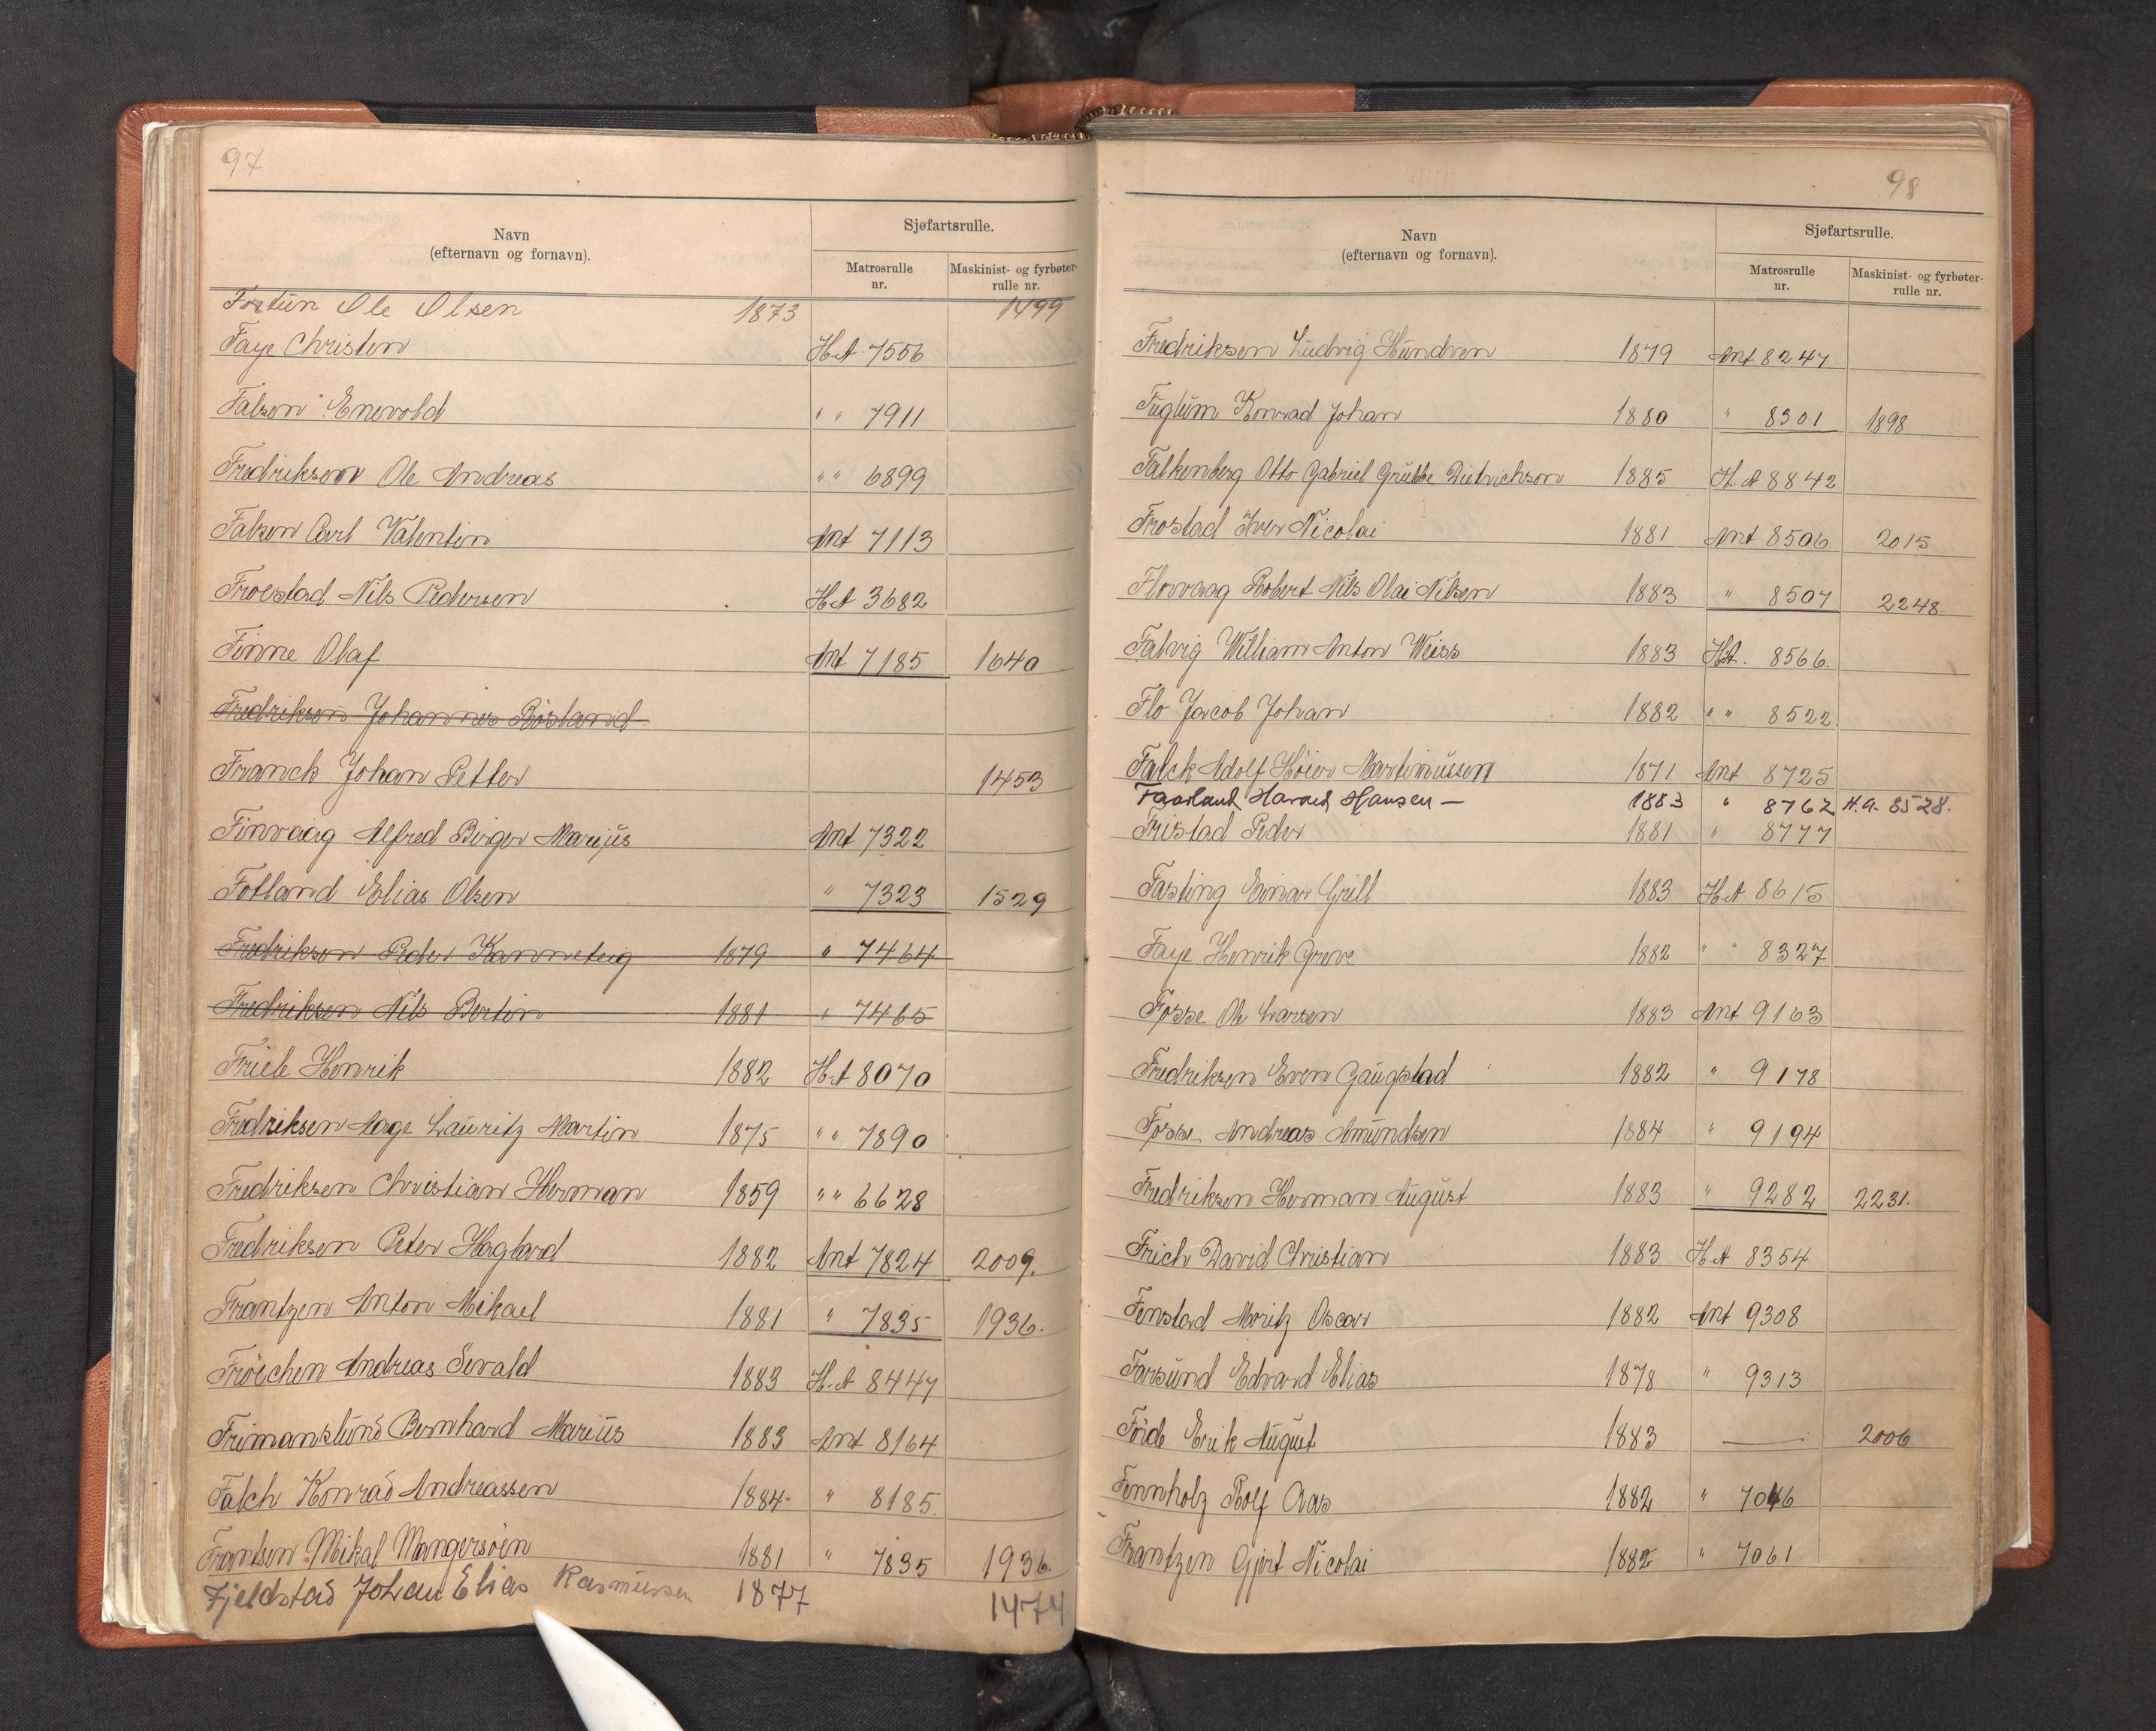 97
Navn
(efternavn og fornavn).
Sjøfartsrulle.
Matrosrulle nr.
Maskinist- og fyrbøter-rulle nr.
Fortun Ole Olsen 1873 1499
Faye Christen H.A. 7556
Falsen Enevold " " 7911
Fredriksen Ole Andreas " " 6899
Falsen Carl Valentin Ant 7113
Froestad Nils Pedersen H.A 3682
Finne Olaf Ant 7185 1640
Fredriksen Johannes Røsland
Franck Johan Petter 1453
Finvaag Alfred Birger Marius Ant 7322
Fotland Elias Olsen " 7323 1529
Fredriksen Peder Kanneteig 1879 " 7464
Fredriksen Nils Bertin 1881 " 7465
Friele Henrik 1882 H.A 8070
Fredriksen Aage Lauritz Martin 1875 " " 7890
Fredriksen Christian Herman 1859 " " 6628
Fredriksen Peter Haglard 1882 Ant 7824 2009.
Frantzen Anton Mikael 1881 " 7835 1936.
Fröechen Andreas Sevald 1883 H.A 8447
Frimanslund Bernhard Marius 1883 Ant 8164
Falch Konrad Andreassen 1884 " 8185.
Frantsen Mikal Mangersöen 1881 " 7835 1936.
Fjeldstad Johan Elias Rasmussen 1877 1474
98
Navn
(efternavn og fornavn).
Sjøfartsrulle.
Matrosrulle nr.
Maskinist- og fyrbøter-rulle nr.
Fredriksen Ludvig Hundven 1879 Ant 8247
Fuglum Konrad Johan 1880 " 8301 1898
Falkenberg Otto Gabriel Grubbe Dietrichson 1885 H.A 8842
Frostad Iver Nicolai 1881 Ant 8506 2015
Florvaag Robert Nils Olai Nilsen 1883 " 8507 2248.
Falvig William Anton Weiss 1883 H.A. 8566.
Flo Jacob Johan 1882 " " 8522.
Falck Adolf Höier Martinussen 1871 Ant 8725
Faarland Harald Hansen — 1883 " 8762 H.A. 8528.
Fristad Peder 1881 " 8777
Fasting Einar Grill 1883 H.A 8615
Faye Henrik Greve 1882 " " 8327
Fosse Ole Larsen 1883 Ant 9163
Fredriksen Even Gaugstad 1882 " 9178
Fosse Andreas Amundsen 1884 " 9194
Fredriksen Herman August 1883 " 9282 2231.
Frich David Christian 1883 H.A 8354
Fenstad Moritz Oscar 1882 Ant 9308
Farsund Edvard Elias 1878 " 9313
Föide Erik August 1883 — 2006
Fennholz Rolf Aas 1882 " 7046
Frantzen Gjert Nicolai 1882 " 7061